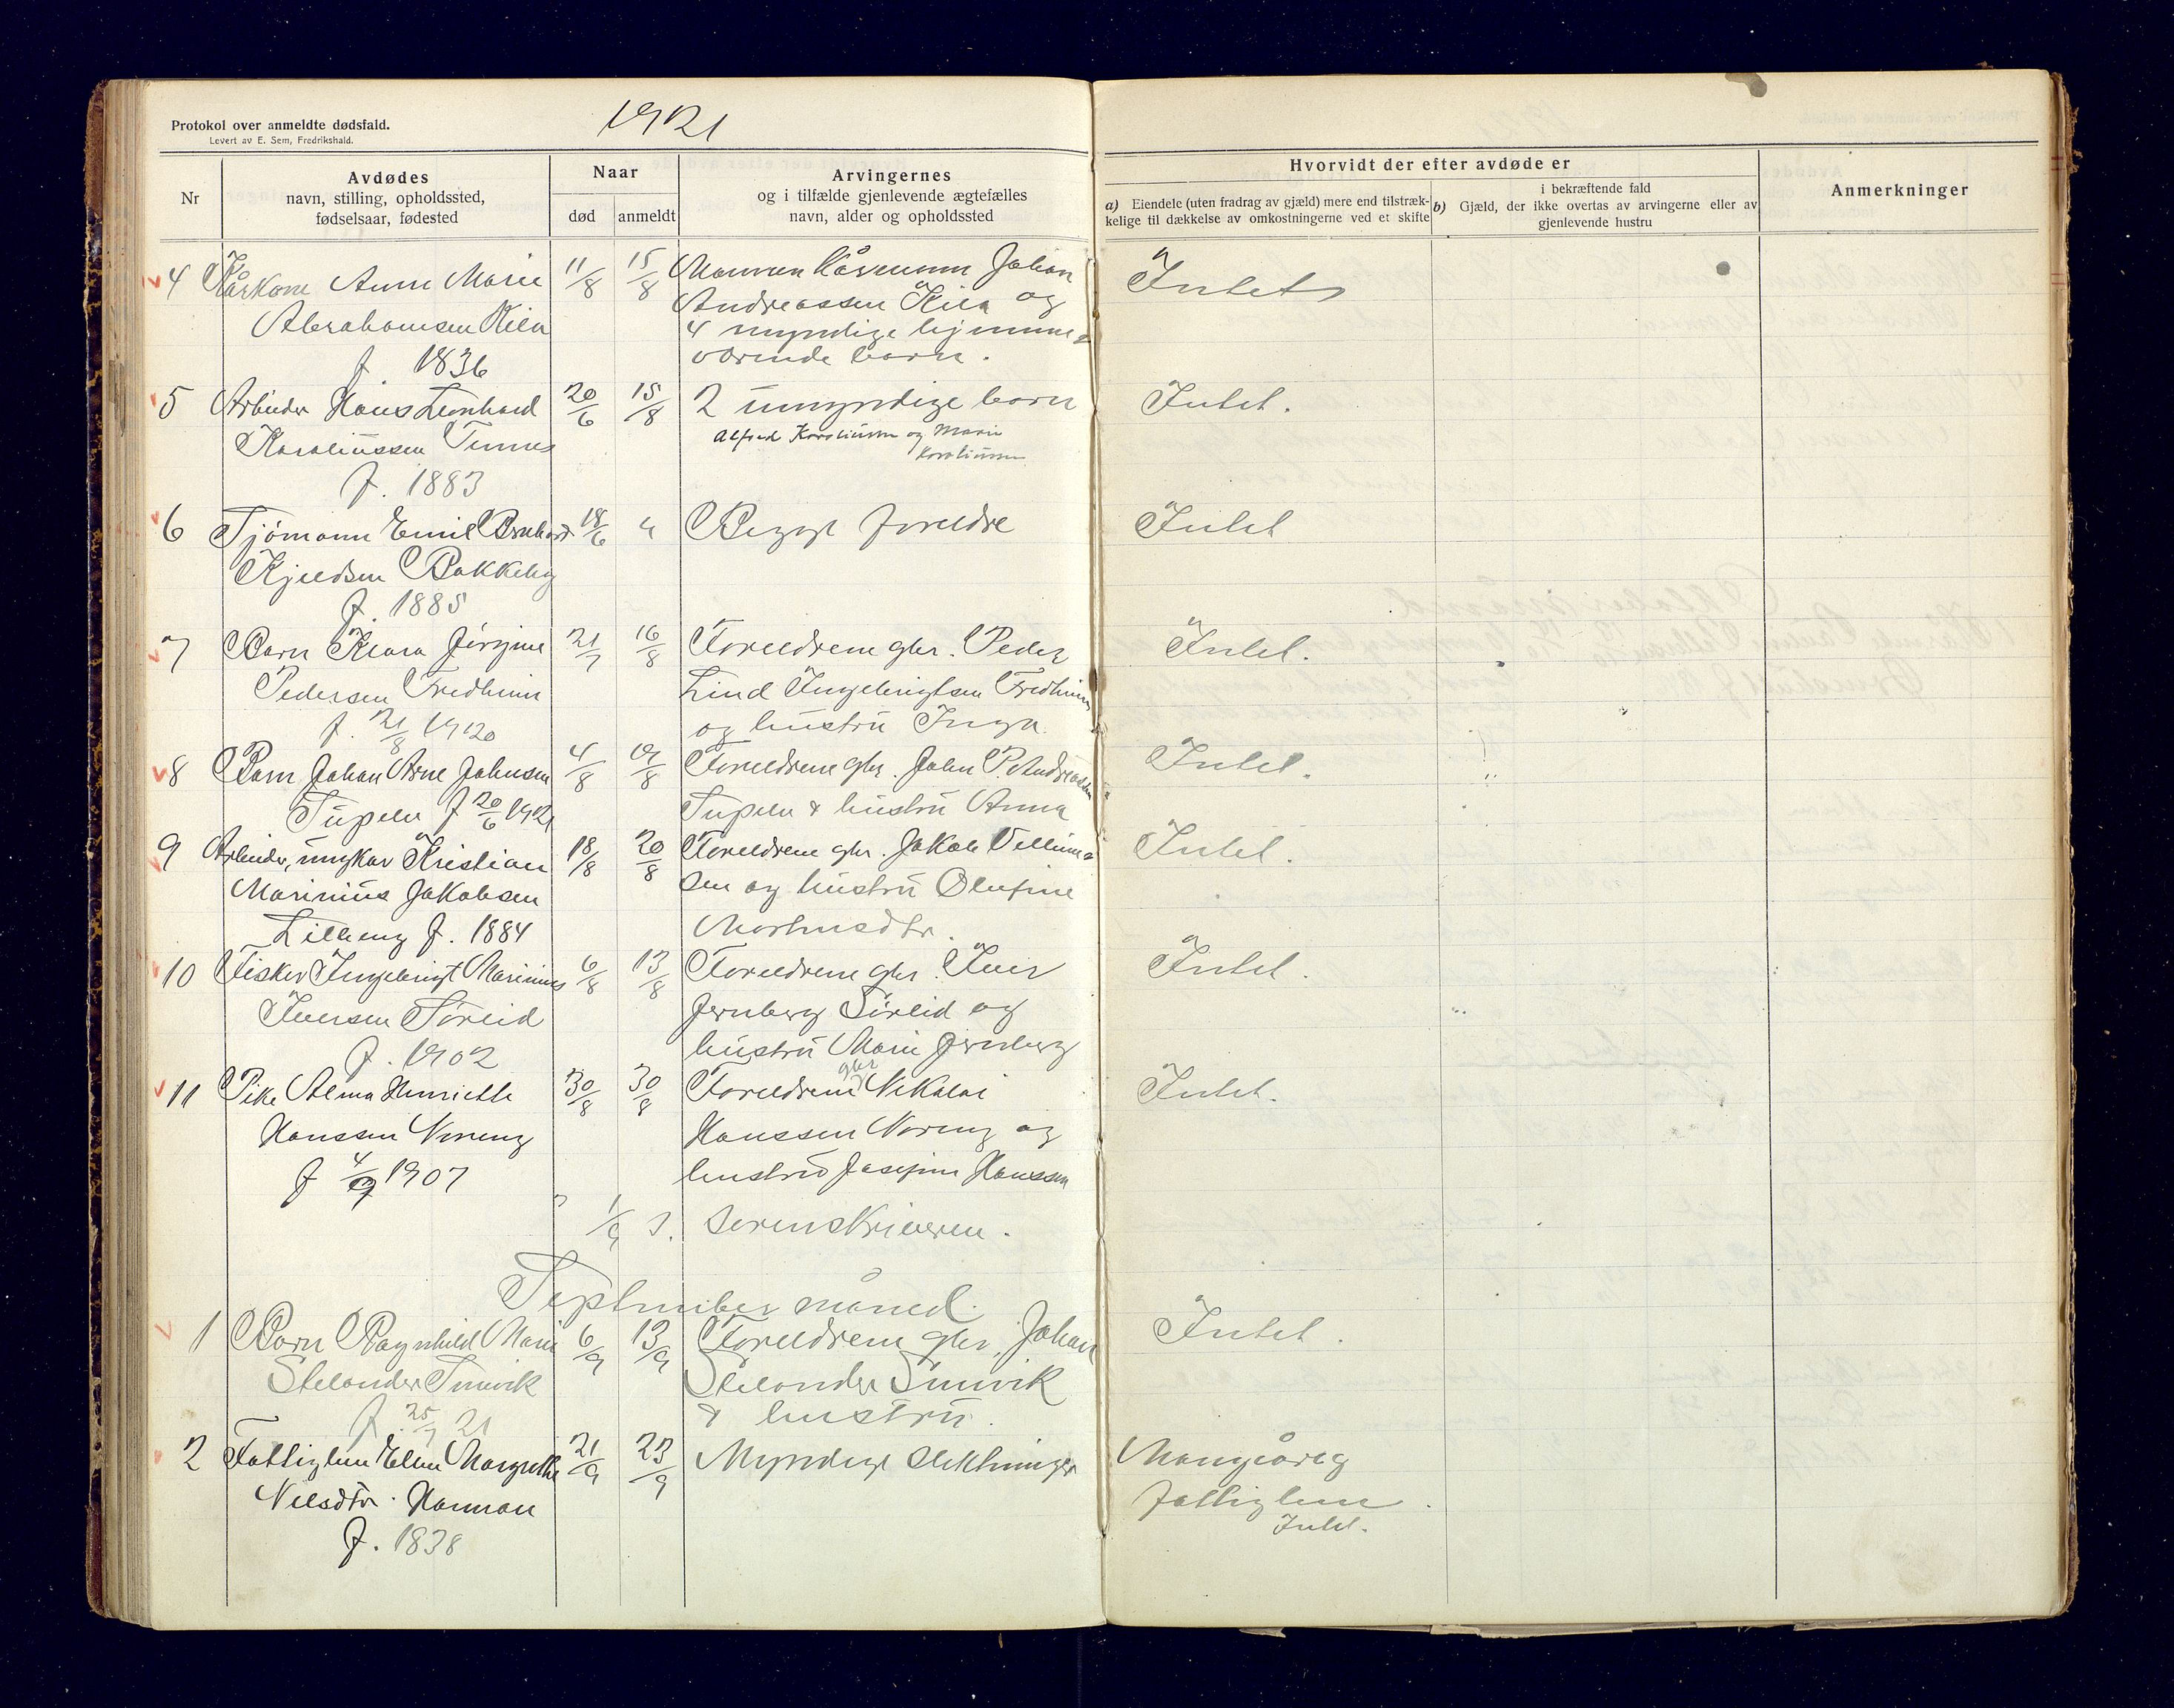 Protokol over anmeldte dødsfald.
Levert av E. Sem, Fredrikshald.
1921
Nr
Avdødes
navn, stilling, opholdssted,
fødselsaar, fødested
Naar
død
anmeldt
Arvingernes
og i tilfælde gjenlevende ægtefælles
navn, alder og opholdssted
Hvorvidt der efter avdøde er
a) Eiendele (uten fradrag av gjæld) mere end tilstræk-
kelige til dækkelse av omkostningerne ved et skifte
i bekræftende fald
b) Gjæld, der ikke overtas av arvingerne eller av
gjenlevende hustru
Anmerkninger
4 Kårkone Anne Marie
Abrahamsen Kila
f. 1836
11/8
15/8
Mannen Kårmann Johan
Andreassen Kila og
4 myndige hjemme-
værende barn.
Intet
5 Arbeider Hans Leonhard
Karoliussen Finnes
f. 1883
20/6
15/8
2 umyndige barn
Alfred Karoliussen og Marie
Karoliussen
Intet.
6 Sjömann Emil Bernhard
Kjeldsen Bakkeby
f. 1885
18/6
"
Begge foreldre
Intet
7 Barn Klara Jörgine
Pedersen Fredheim
f. 21/8 1920
21/7
16/8
Foreldrene gbr. Peder
Lind Ingebrigtsen Fredheim
og hustru Inga.
Intet.
8 Barn Johan Arne Johnsen
f 20/6 1921
4/8
19/8
Foreldrene gbr. John P. Andreassen
& hustru Anna
Intet.
9 Arbeider, ungkar Kristian
Marinius Jakobsen
Lilleeng f. 1884
18/8
20/8
Foreldrene gbr. Jakob Vellum-
sen og hustru Olufine
Mortensdtr.
Intet.
10 Fisker Ingebrigt Marinius
Iversen Sörlid
f. 1902
6/8
13/8
Foreldrene gbr. Iver
Jernberg Sörlid og
hustru Marie Jernberg
Intet.
11 Pike Alma Henriette
Hanssen Noreng
f 4/9 1907
30/8
30/8
Foreldrene gbr Nikolai
Hanssen Noreng og
hustru Josefine Hanssen
Intet.
1/9 S. Sorenskriveren.
September måned.
1 Barn Ragnhild Marie
Stelander
f. 25/7 21
6/9
13/9
Foreldrene gbr. Johan
Stelander
& hustru.
Intet.
2 Fattiglem Elen Margrethe
Nilsdtr. Hamnan
f. 1838
21/9
23/9
Myndige slektninger
Mangeårig
fattiglem.
Intet.